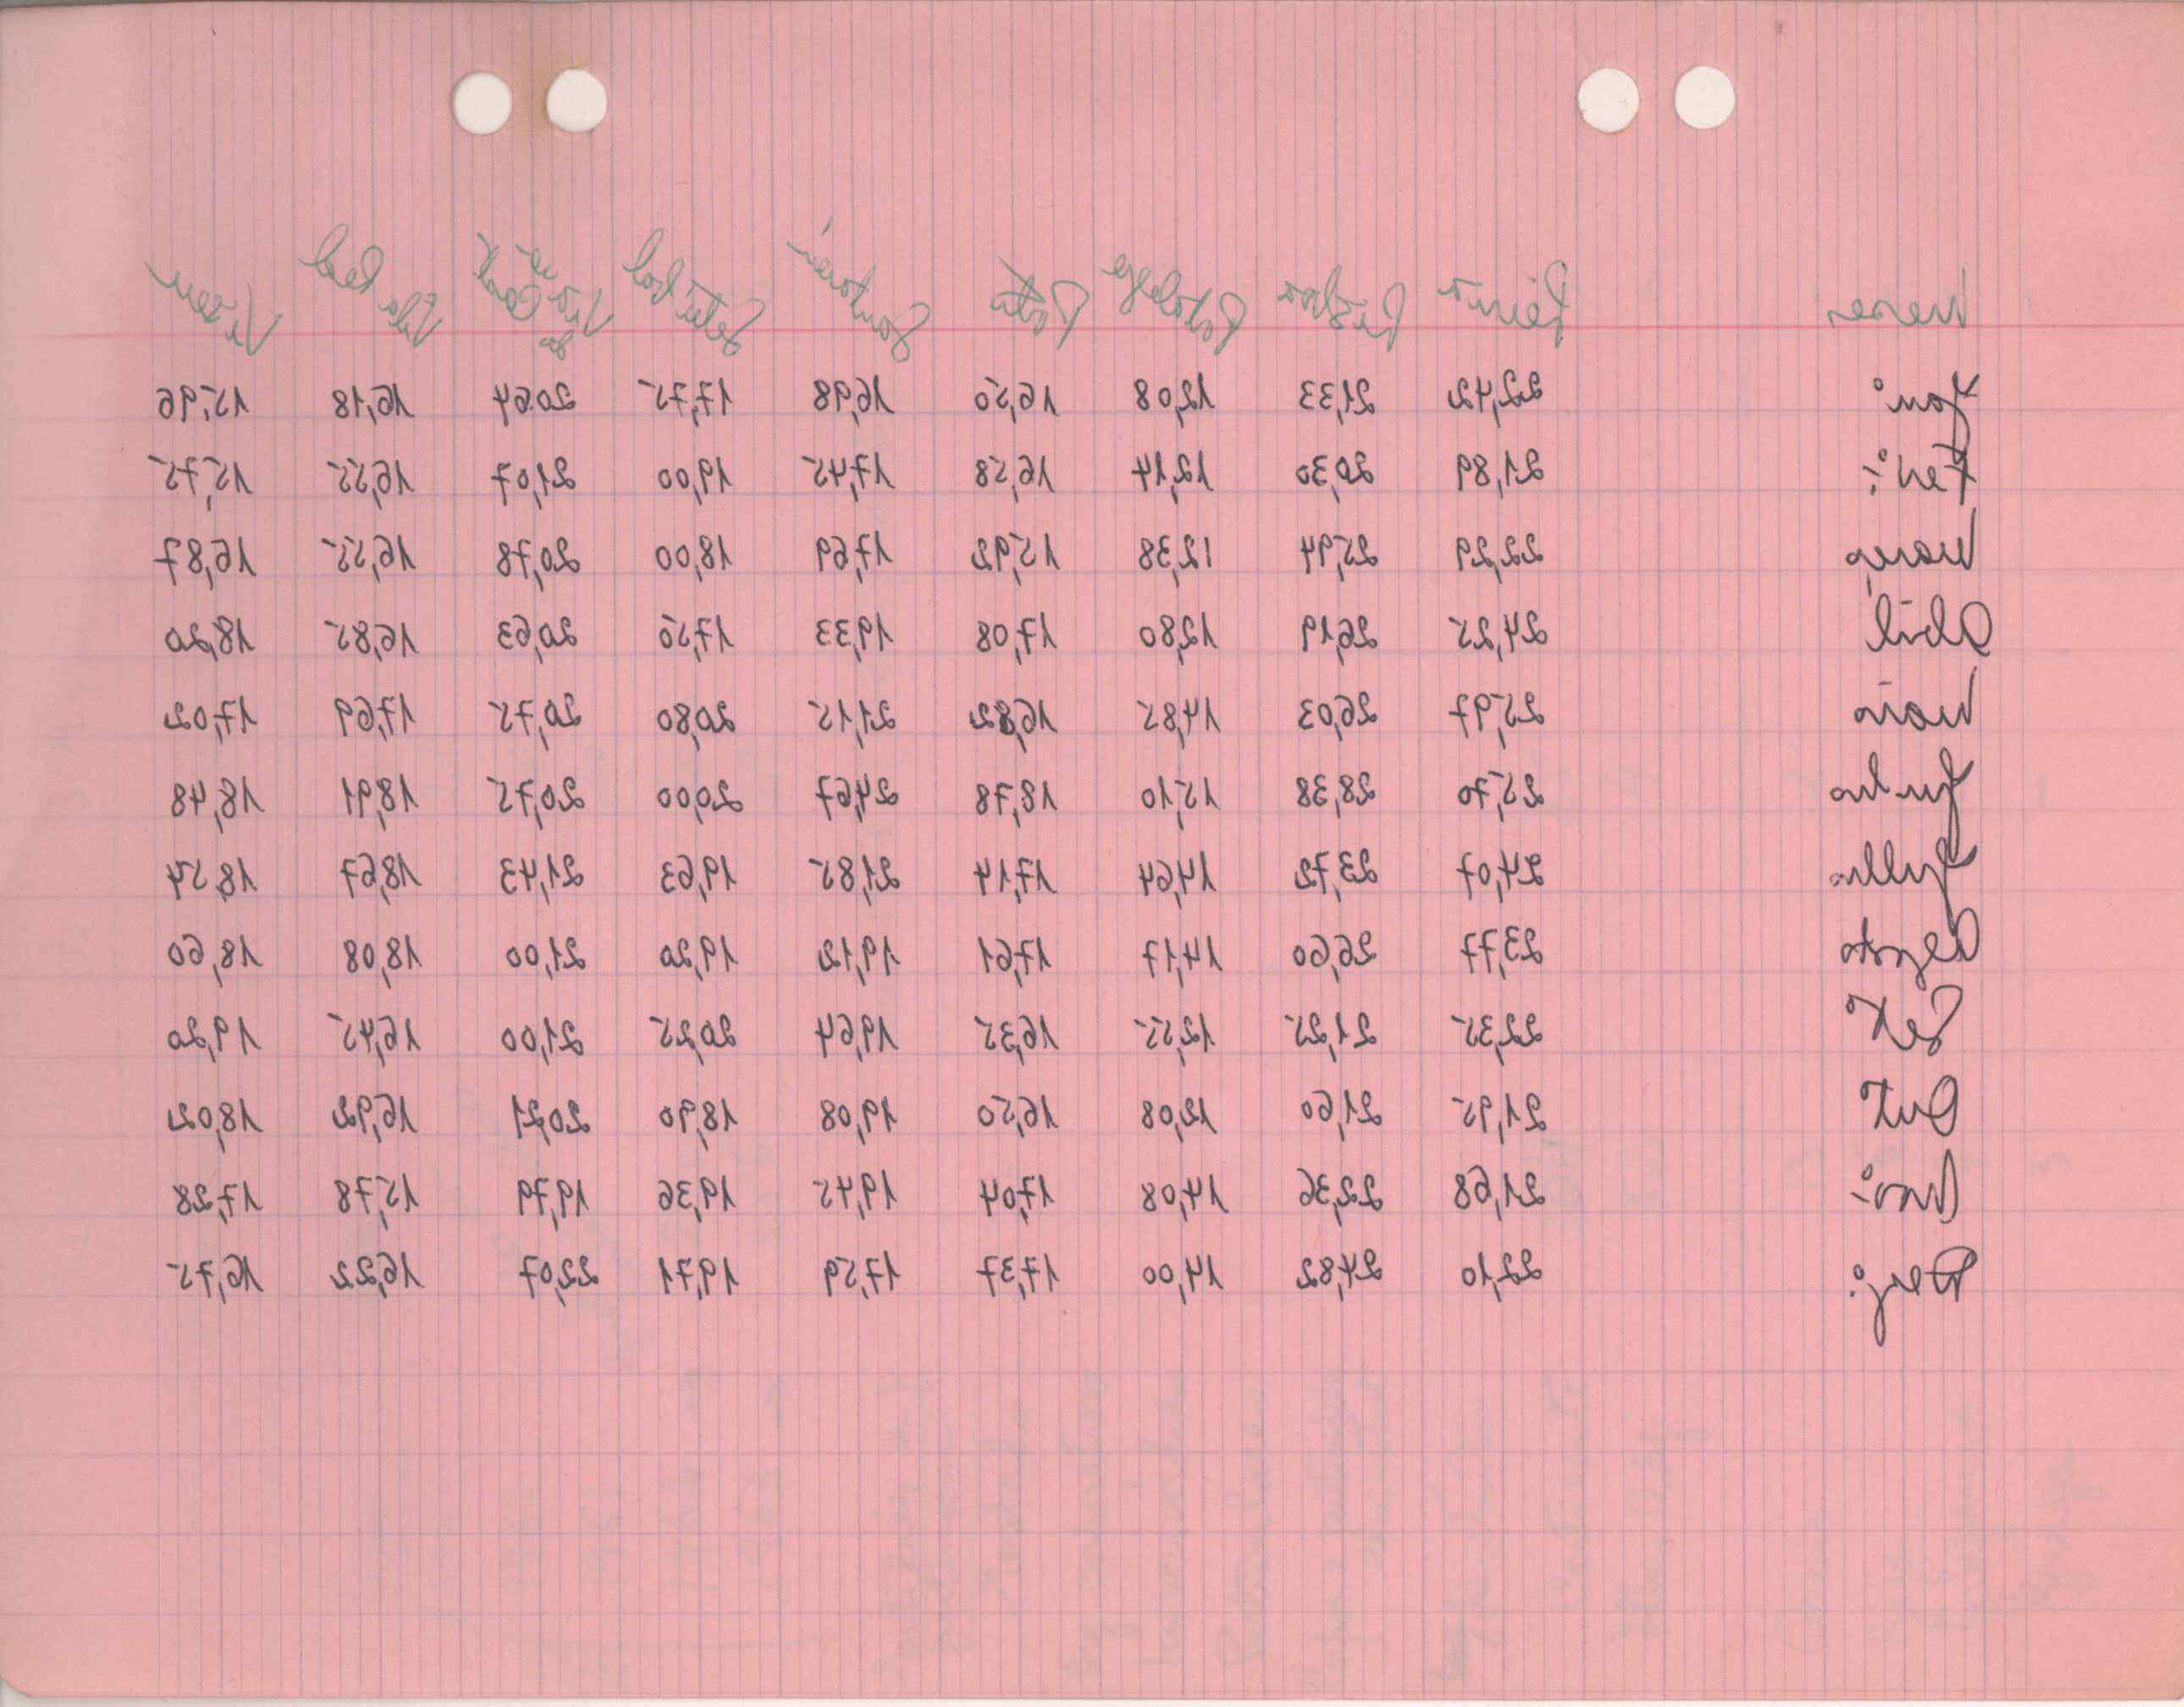 Meses Leiria Lisboa Portalegre Porto Santarém Setúbal Viana do Castº Vila Real Viseu
Janº 22,42 21,33 12,08 16,50 16,98 17,75 20,64 16,18 15,96
Fevº 21,89 20,30 12,14 16,58 17,45 19,00 21,07 16,55 15,75
Março 22,29 25,94 12,38 15,92 17,69 18,00 20,78 16,55 16,87
Abril 24,25 26,19 12,80 17,08 19,33 17,50 20,63 16,85 18,20
Maio 25,97 26,03 14,85 16,82 21,15 20,80 20,75 17,69 17,02
Junho 25,70 28,38 15,10 18,78 24,67 20,00 20,75 18,91 18,48
Julho 24,07 23,72 14,64 17,14 21,85 19,63 21,43 18,67 18,54
Agosto 23,77 26,60 14,17 17,61 19,12 19,20 21,00 18,08 18,60
Setº 22,35 21,25 12,55 16,35 19,64 20,25 21,00 16,45 19,20
Outº 21,95 21,60 12,08 16,50 19,08 18,90 20,21 16,92 18,02
Novº 21,68 22,36 14,08 17,04 19,45 19,36 19,79 15,78 17,28
Dezº 22,10 24,82 14,00 17,37 17,59 19,71 22,07 16,22 16,75